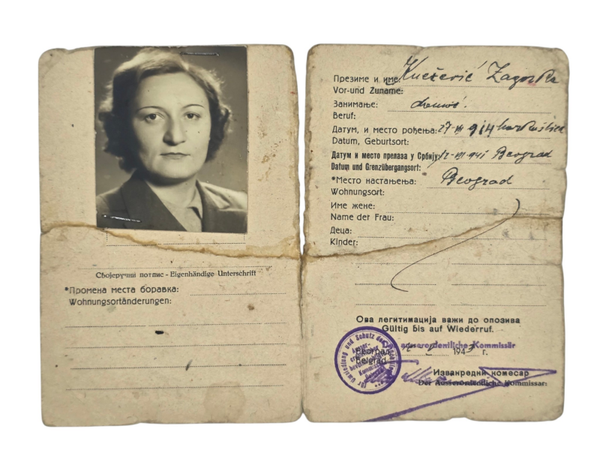 Својеручни потпис - Eigenhändige Unterschrift
*Промена места боравка:
Wohnungsortänderungen:
Презиме и име: Knežević Zagorka
Vor-und Zuname:
Занимање:
Beruf:
Датум, и место рођења: 27
Datum, Geburtsort:
Датум и место прелаза у Србију: 1941 Beograd
Datum und Grenzübergangsort:
*Место настањења: Beograd
Wohnungsort:
Име жене:
Name der Frau:
Деца:
Kinder:
Ова легитимација важи до опозива
Gültig bis auf Wiederruf.
ausserordentliche Kommissär
Београд 194 г.
Belgrad
Изванредни комесар
Der Ausserordentliche Kommissar: